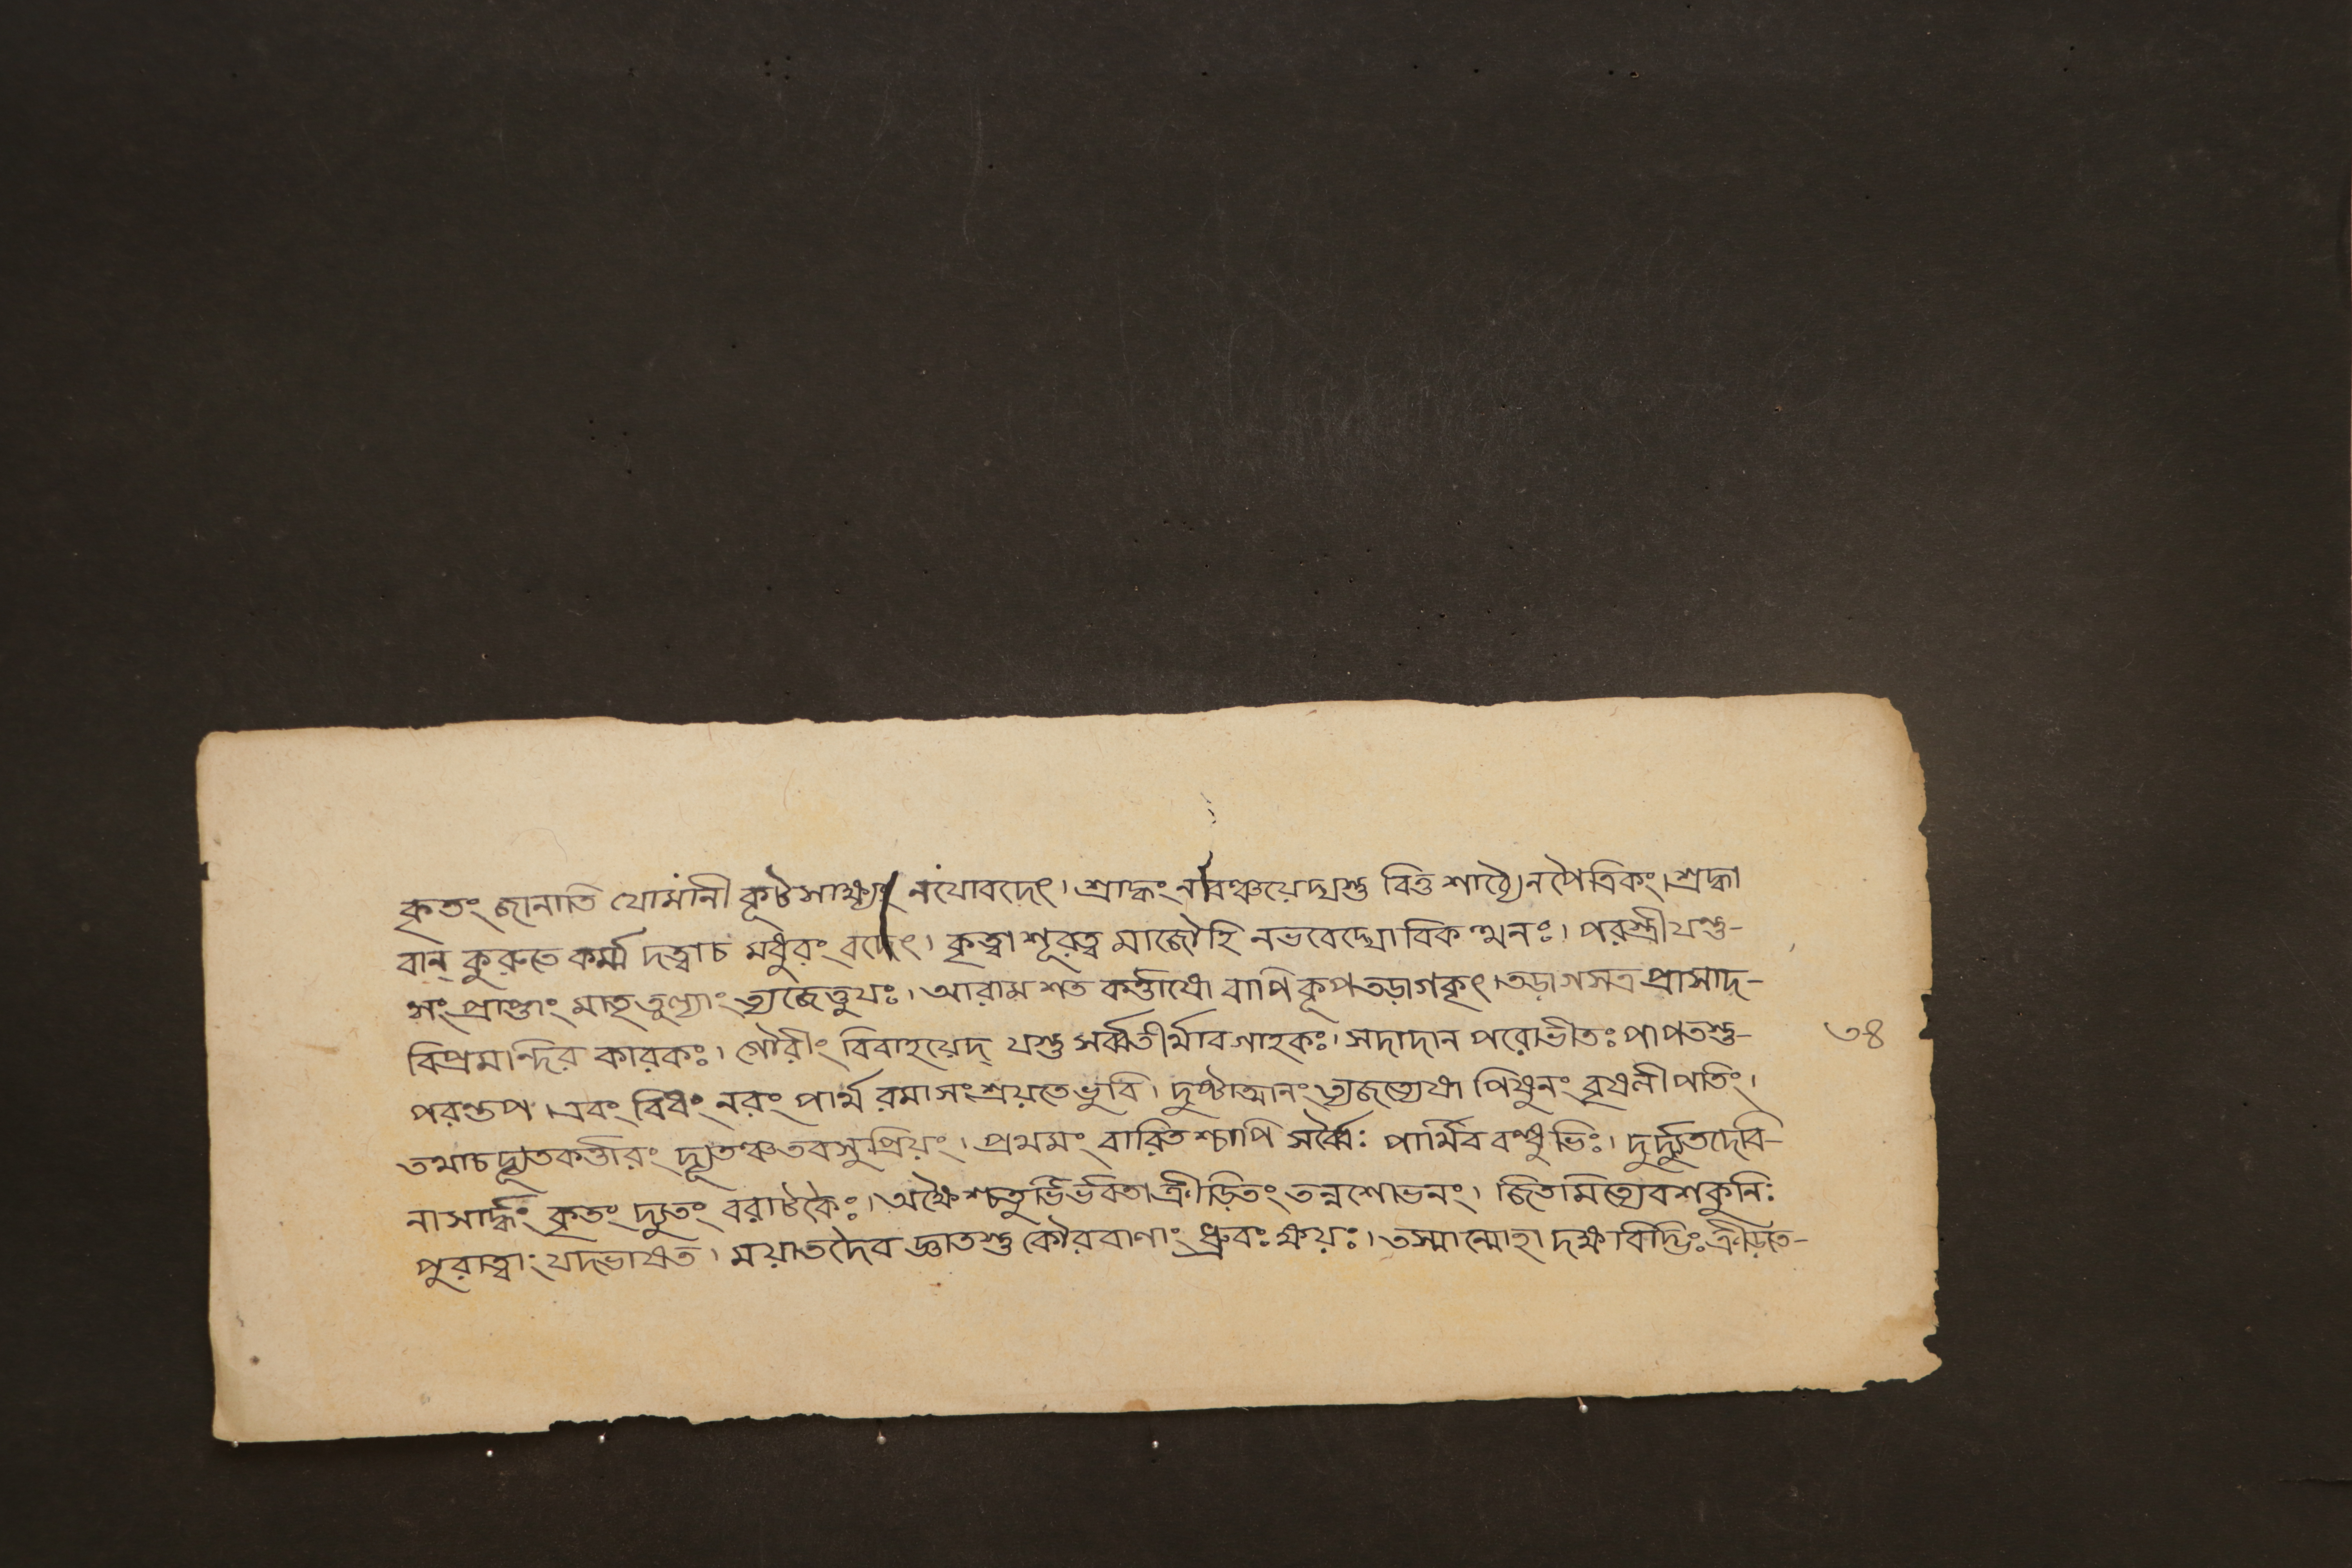 কৃতং জানাতি যোমানী কূটসাক্ষ্যং নযোবদেৎ। শ্রাদ্ধং নবঞ্চয়েদ্যস্তু বিত্ত শাঠ্যেন পৈত্রিকং। শ্রদ্ধা
বান্ কুরুতে কর্ম্ম দত্বাচ মধুরং বদেৎ। কৃত্বা শূরত্ব মাজৌহি নভবেদ্যো বিকত্থনঃ। পরস্ত্রী যস্তু-
সংপ্রাপ্তাং মাতৃতুল্যাং ত্যজেত্তুযঃ। আরাম শত কর্ত্তাযো বাপি কূপতড়াগকৃৎ। তড়াগসত্র প্রাসাদ-
বিপ্রমন্দির কারকঃ। গৌরীং বিবাহয়েদ্ যস্তু সর্ব্বতীর্থাবগাহকঃ। সদাদান পরোভীতঃ পাপতস্তু-
পরন্তপ। এবং বিধং নরং পার্থ রমাসংশ্রয়তে ভুবি। দুষ্টাত্মানং ত্যজত্যেষা পিষুনং বৃষলীপতিং।
তথাচদ্যূতকর্ত্তারং দ্যূতঞ্চতবসুপ্রিয়ং। প্রথমং বারিতশ্চাপি সর্ব্বৈঃ পার্থিব বন্ধুভিঃ। দুর্দ্যুতদেবি-
নাসার্দ্ধং কৃতং দ্যুতং বরাটকৈঃ। অক্ষৈশ্চতুর্ভির্ভবতা ক্রীড়িতং তন্নশোভনং। জিতমিত্যেবশকুনিঃ
পুরাত্বাং যদভাষত। ময়াতদৈব জ্ঞাতস্তু কৌরবাণাং ধ্রুবঃ ক্ষয়ঃ। তস্মান্মোহা দক্ষবিদ্ভিঃ ক্রীড়তে-
৩৪